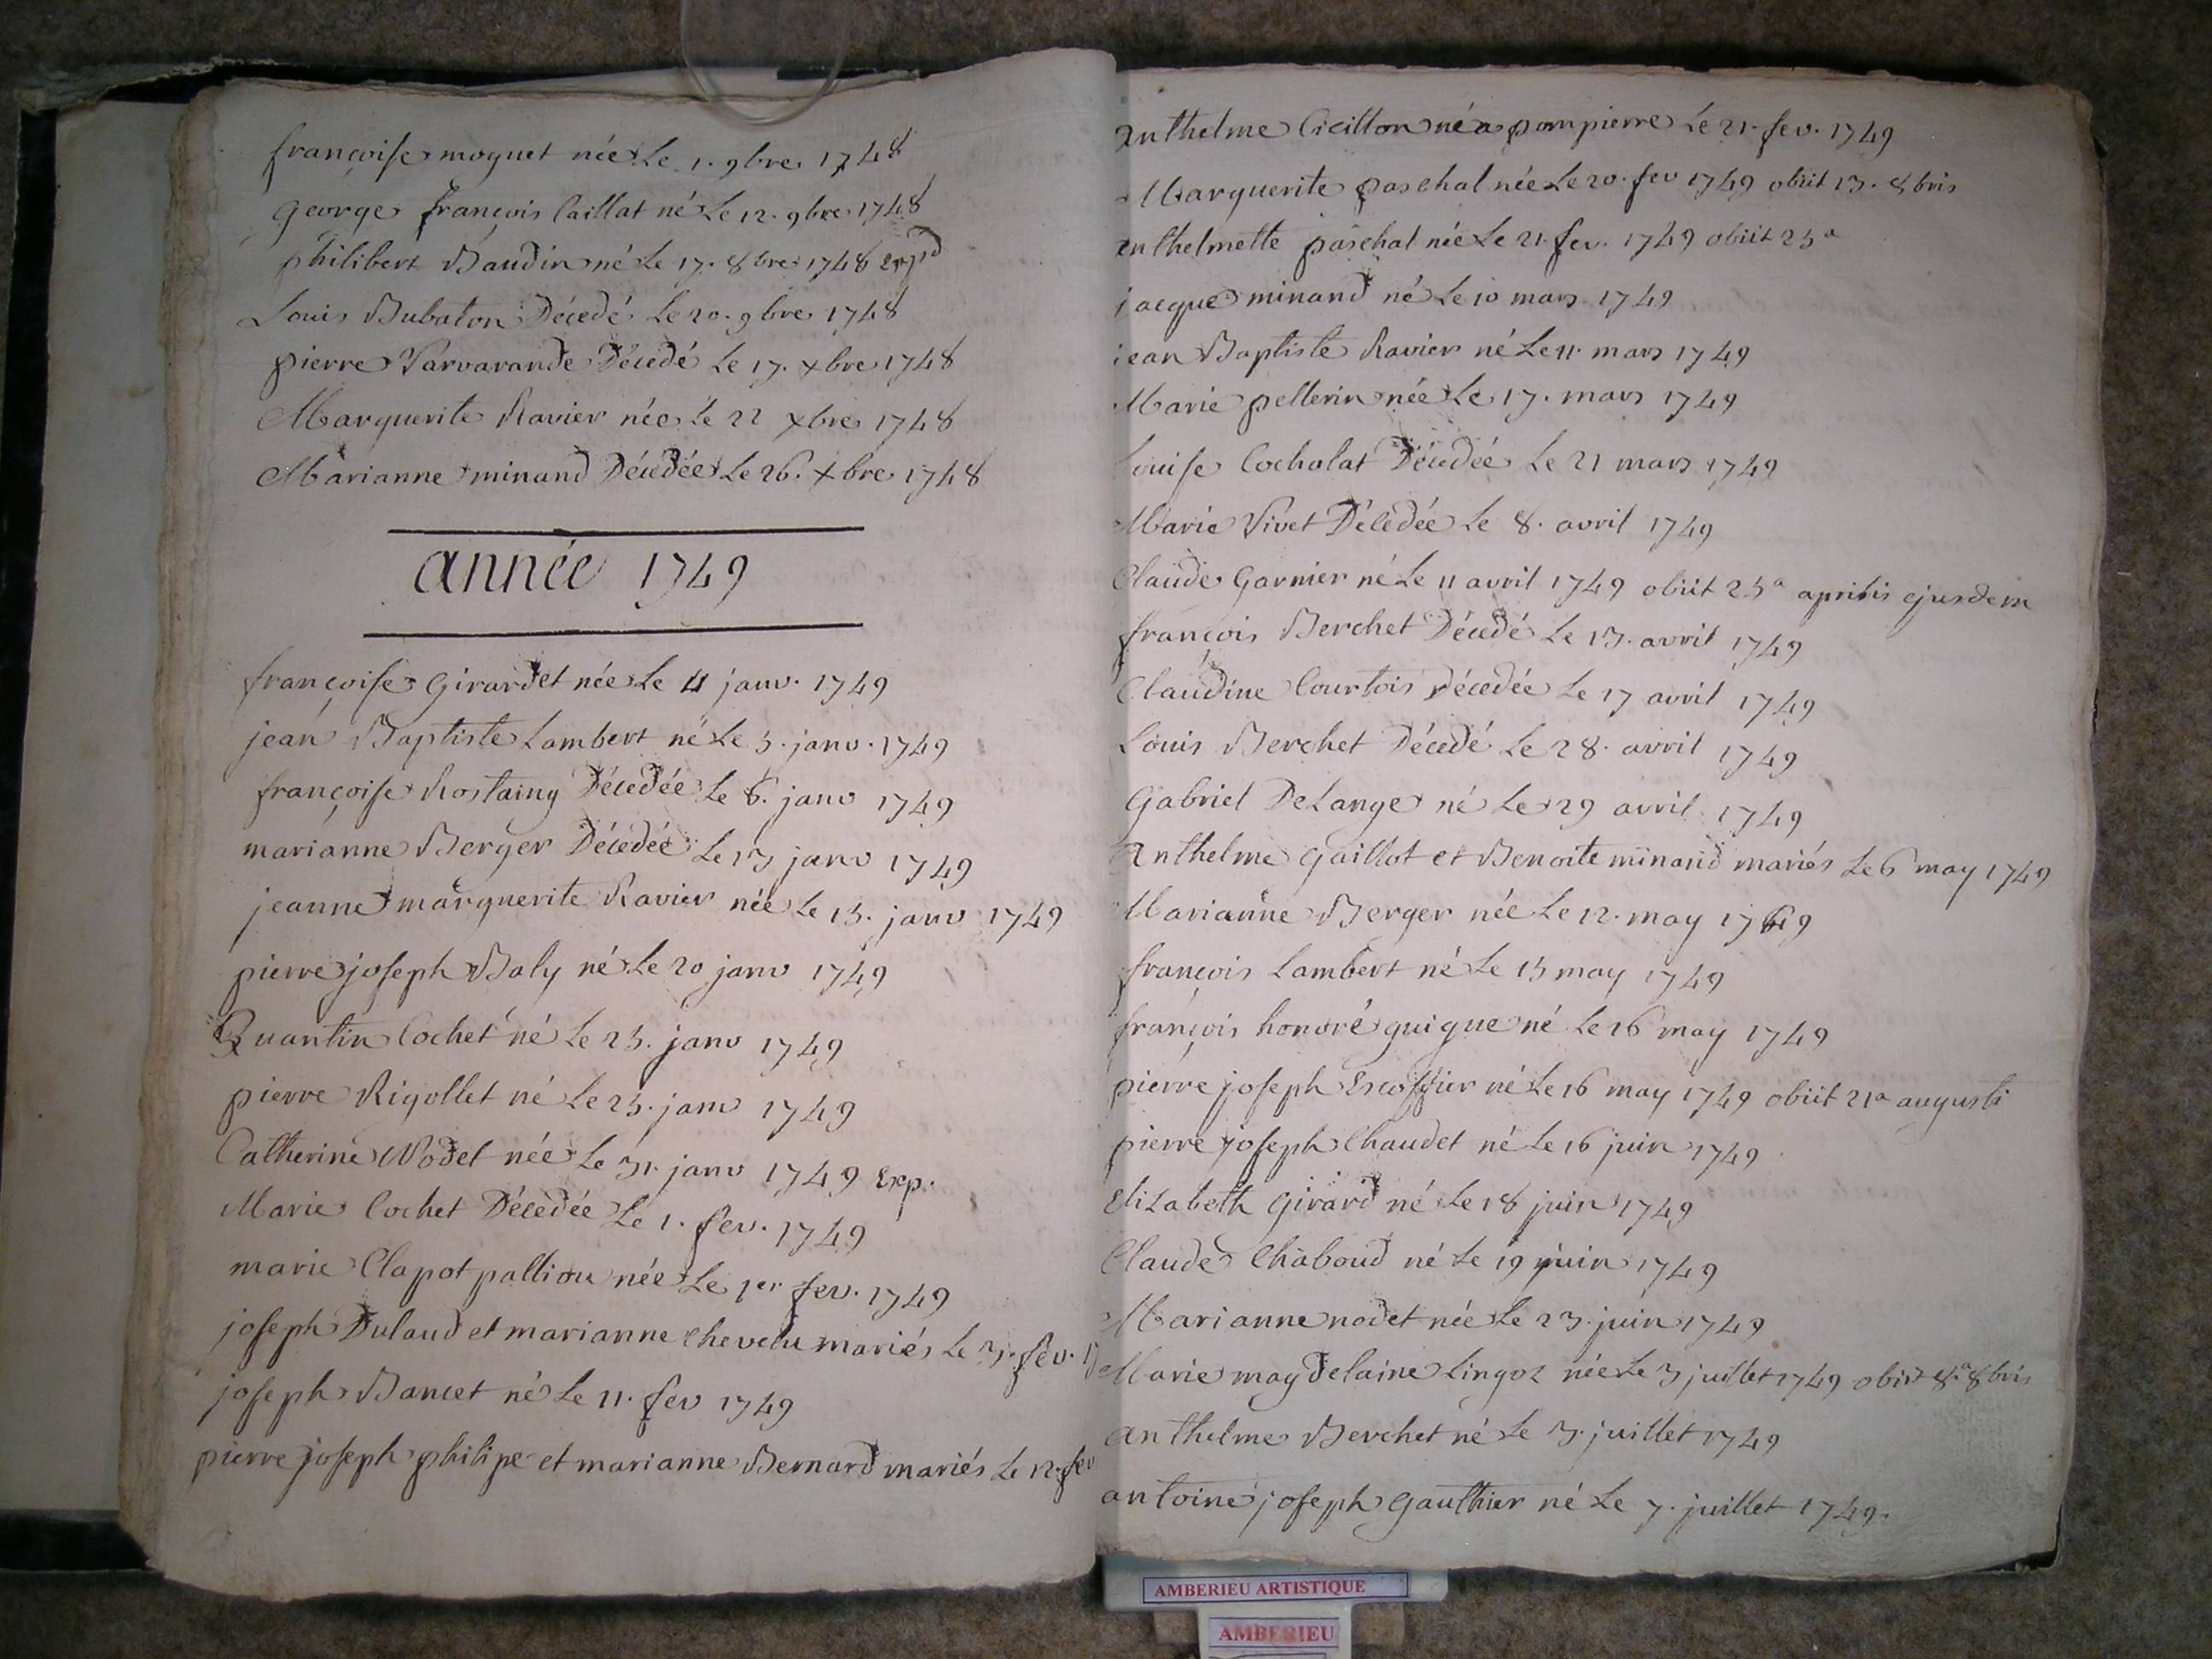 françoise moguet née Le 1. 9bre 1748
george françois Caillat né Le 12. 9bre 1748
philibert Baudin né Le 17. 8bre 1748 expd
Louis Bubaton Décedé Le 20. 9bre 1748
pierre Varvarande Décedé Le 17. xbre 1748
Marguerite Ravier née Le 22 xbre 1748
Marianne minand Décedée Le 26. xbre 1748
année 1749
françoise Girardet née Le 4 janv. 1749
jean Baptiste Lambert né Le 5. janv. 1749
françoise Rostaing Décedée Le 6. janv 1749
marianne Berger Décedée Le 13 janv 1749
jeanne marguerite Ravier née Le 15. janv 1749
pierre joseph Baly né Le 20 janv 1749
Quantin Cochet né Le 25. janv 1749
pierre Rigollet né Le 25. janv 1749
Catherine Nodet née Le 31. janv 1749 Exp.
Marie Cochet Décedée Le 1. fev. 1749
marie Clapot palliou née Le 1er fev. 1749
joseph Dulaud et marianne Chevelu mariés Le 3. fev.
joseph Bancet né Le 11. fev 1749
pierre joseph philipe et marianne Bernard mariés Le 12. fev
Anthelme né a pompierre Le 21. fev. 1749
Marguerite paschal née Le 20. fev 1749 obiit 13. 8bris
Anthelmette paschal née Le 21. fev. 1749 obiit 25a
jacque minand né Le 10 mars 1749
jean Baptiste Ravier né Le 11. mars 1749
Marie pellerin née Le 17. mars 1749
Louise Cocholat Décedée Le 21 mars 1749
Marie Vivet Décedée Le 8. avril 1749
Claude Garnier né Le 11 avril 1749 obiit 25a aprilis ejusdem
françois Berchet Décedé Le 13. avril 1749
Claudine Courtois Décedée Le 17 avril 1749
Louis Berchet Décedé Le 28. avril 1749
Gabriel DeLange né Le 29 avril 1749
Anthelme Guillot et Benoite minand mariés Le 6 may 1749
Marianne Berger née Le 12. may 1749
françois Lambert né Le 15 may 1749
françois honoré guigue né Le 16 may 1749
pierre joseph Escoffier né Le 16 may 1749 obiit 21a augusti
pierre joseph Chaudet né Le 16 juin 1749
EliZabeth Girard né Le 18 juin 1749
Claude Chaboud né Le 19 juin 1749
Marianne nodet née Le 23. juin 1749
Marie magdelaine Lingoz née Le 3 juillet 1749 obiit 8.a 8bris
Anthelme Berchet né Le 3. juillet 1749
antoine joseph Gauthier né Le 7. juillet 1749.
AMBERIEU ARTISTIQUE
AMBERIEU